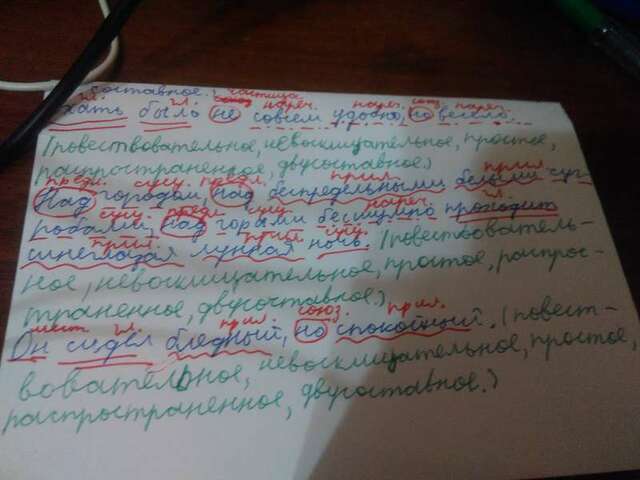 составное. частица
гл. гл. нареч. нареч. союз. нареч.
ехать было не совсем удобно, но весело.
(повествовательное, невосклицательное, простое,
распространенное, двусоставное.)
предл. сущ. предл. прил. прил.
Над городом, над беспредельными белыми суг-
сущ. предл. сущ. нареч. гл.
робами, над горами бесшумно проходит
прил. прил. сущ.
синеглазая лунная ночь. (повествователь-
ное, невосклицательное, простое, распрос-
траненное, двусоставное.)
мест. гл. прил. союз. прил.
Он сидел бледный, но спокойный. (повест-
вовательное, невосклицательное, простое,
распространенное, двусоставное.)